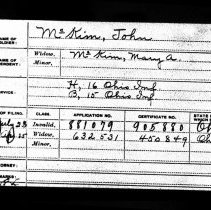 NAME OF SOLDIER: McKim, John
NAME OF DEPENDENT: Widow, McKim, Mary A.
Minor,
SERVICE H, 16 Ohio Inf
B, 15 Ohio Inf
OF FILING. CLASS. APPLICATION NO. CERTIFICATE NO. STATE
Invalid, 881079 905880
Widow, 632531 450849
Minor,
ATTORNEY: